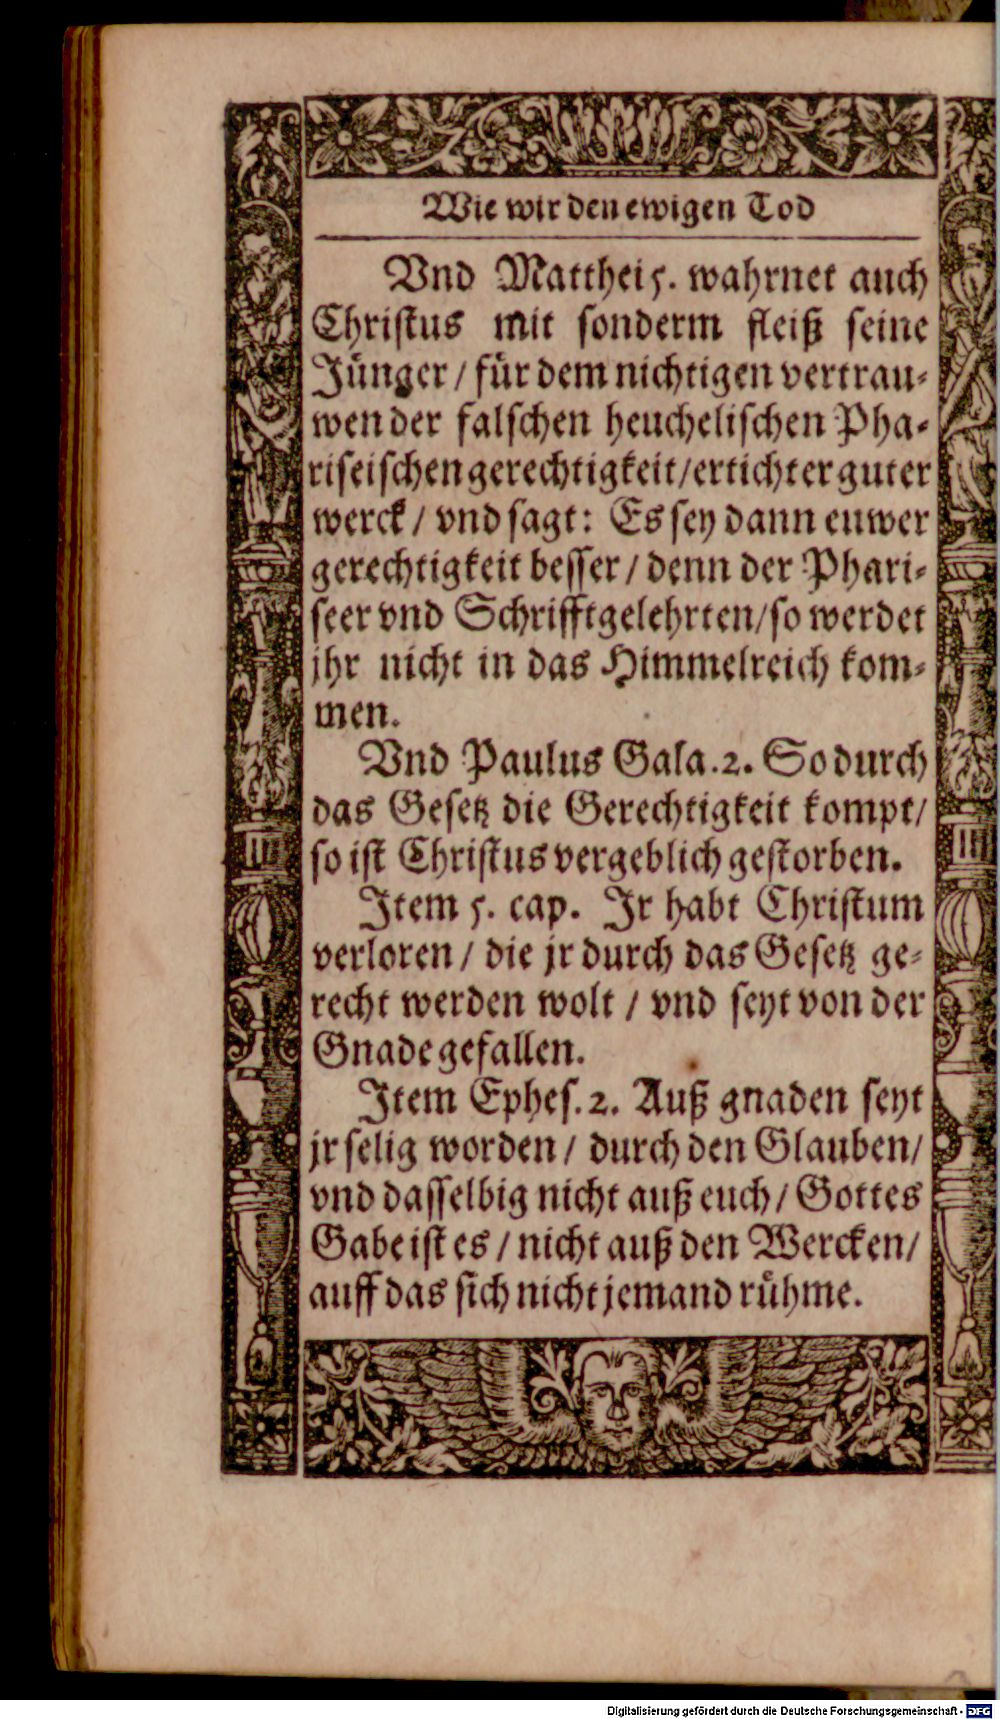 Wie wir den ewigen Tod
Vnd Matthei 5. wahrnet auch
Christus mit sonderm fleiß seine
Jünger / für dem nichtigen vertrau⸗
wen der falschen heuchelischen Pha⸗
riseischen gerechtigkeit/ertichter guter
werck / vnd sagt: Es sey dann euwer
gerechtigkeit besser / denn der Phari⸗
seer vnd Schrifftgelehrten/so werdet
jhr nicht in das Himmelreich kom⸗
men.
Vnd Paulus Gala.2. So durch
das Gesetz die Gerechtigkeit kompt/
so ist Christus vergeblich gestorben.
Item 5. cap. Ir habt Christum
verloren / die jr durch das Gesetz ge⸗
recht werden wolt / vnd seyt von der
Gnade gefallen.
Item Ephes.2. Auß gnaden seyt
jr selig worden / durch den Glauben/
vnd dasselbig nicht auß euch / Gottes
Gabe ist es / nicht auß den Wercken/
auff das sich nicht jemand rühme.
Digitalisierung gefördert durch die Deutsche Forschungsgemeinschaft - DFG